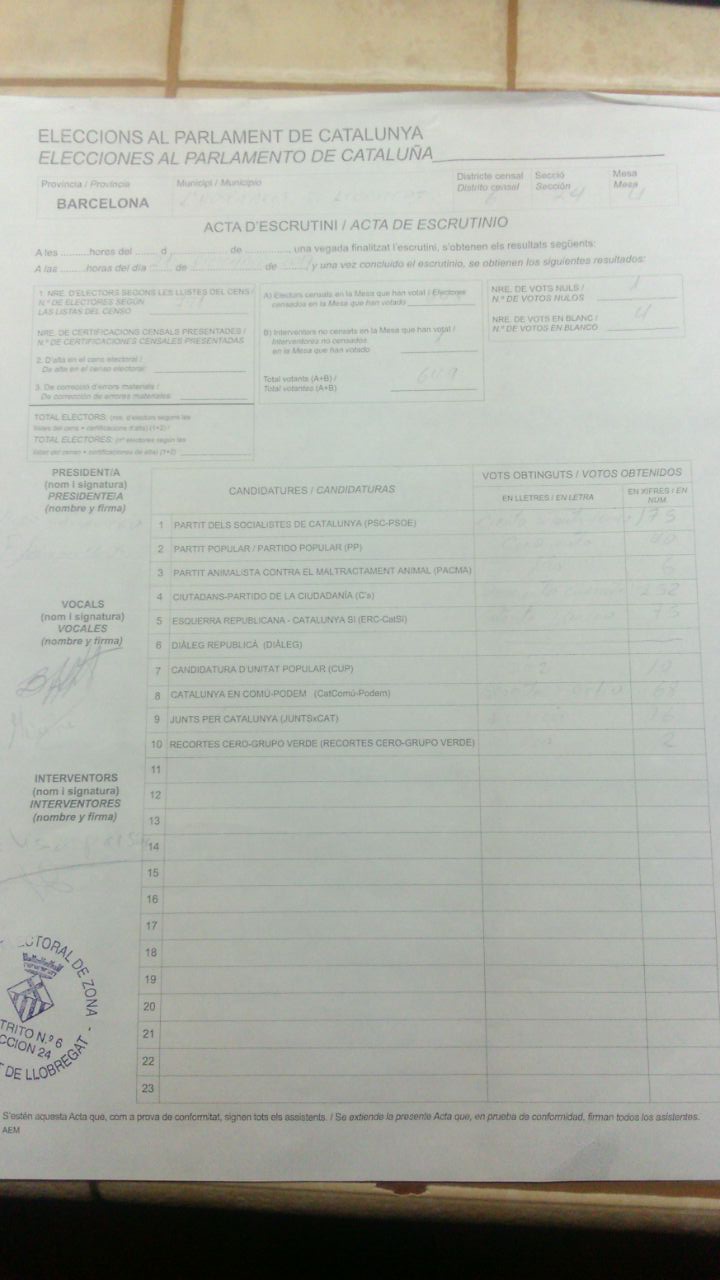 ELECCIONS AL PARLAMENT DE CATALUNYA
ELECCIONES AL PARLAMENTO DE CATALUÑA
Provincia / Provincia
BARCELONA
Municipi / Municipio
Districte censal
Distrito censal
6
Secció
Sección
24
Mesa
Mesa
U
ACTA D'ESCRUTINI / ACTA DE ESCRUTINIO
A les ......... hores del ...... d ............ de ............, una vegada finalitzat l'escrutini, s'obtenen els resultats següents:
A las ......... horas del día ...... de ............ de ............ y una vez concluido el escrutinio, se obtienen los siguientes resultados:
1. NRE. D'ELECTORS SEGONS LES LLISTES DEL CENS /
N.º DE ELECTORES SEGÚN
LAS LISTAS DEL CENSO
NRE. DE CERTIFICACIONS CENSALS PRESENTADES /
N.º DE CERTIFICACIONES CENSALES PRESENTADAS
2. D'alta en el cens electoral /
De alta en el censo electoral:
3. De correcció d'errors materials /
De corrección de errores materiales
TOTAL ELECTORS: (nre. d'electors segons les
llistes del cens + certificacions d'alta) (1+2) /
TOTAL ELECTORES: (nº electores según las
listas del censo + certificaciones de alta) (1+2)
A) Electors censats en la Mesa que han votat / Electores
censados en la Mesa que han votado
B) Interventors no censats en la Mesa que han votat /
Interventores no censados
en la Mesa que han votado
Total votants (A+B) /
Total votantes (A+B)
649
NRE. DE VOTS NULS /
N.º DE VOTOS NULOS
1
NRE. DE VOTS EN BLANC /
N.º DE VOTOS EN BLANCO
4
PRESIDENT/A
(nom i signatura)
PRESIDENTE/A
(nombre y firma)
VOCALS
(nom i signatura)
VOCALES
(nombre y firma)
INTERVENTORS
(nom i signatura)
INTERVENTORES
(nombre y firma)
CANDIDATURES / CANDIDATURAS
VOTS OBTINGUTS / VOTOS OBTENIDOS
EN LLETRES / EN LETRA
EN XIFRES / EN NUM.
1 PARTIT DELS SOCIALISTES DE CATALUNYA (PSC-PSOE) 175
2 PARTIT POPULAR / PARTIDO POPULAR (PP)
3 PARTIT ANIMALISTA CONTRA EL MALTRACTAMENT ANIMAL (PACMA) 6
4 CIUTADANS-PARTIDO DE LA CIUDADANÍA (C's) 252
5 ESQUERRA REPUBLICANA - CATALUNYA SÍ (ERC-CatSí) 75
6 DIÀLEG REPUBLICÀ (DIÀLEG)
7 CANDIDATURA D'UNITAT POPULAR (CUP) 10
8 CATALUNYA EN COMÚ-PODEM (CatComú-Podem) 68
9 JUNTS PER CATALUNYA (JUNTSxCAT) 16
10 RECORTES CERO-GRUPO VERDE (RECORTES CERO-GRUPO VERDE) 2
11
12
13
14
15
16
17
18
19
20
21
22
23
CTORAL DE ZONA
TRITO N.º 6
CCION 24
T DE LLOBREGAT -
S'estén aquesta Acta que, com a prova de conformitat, signen tots els assistents. / Se extiende la presente Acta que, en prueba de conformidad, firman todos los asistentes.
AEM